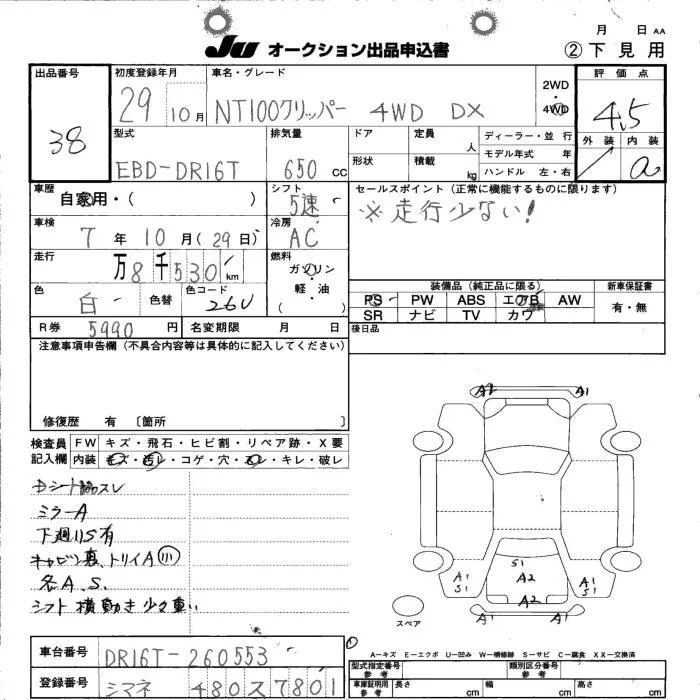 月 日 AA
JU オークション出品申込書 ②下見用
出品番号 38
初度登録年月 29 10月
車名・グレード NT100クリッパー 4WD DX
2WD
・
4WD
評価点 4.5
外装 内装 a
型式 EBD-DR16T
排気量 650 CC
ドア 定員 人
形状 積載 kg
ディーラー・並行
モデル年式 年
ハンドル 左・右
車歴 自家用・( )
シフト 5速
セールスポイント（正常に機能するものに限ります）
※走行少ない!
車検 7年10月(29日)
冷房 AC
走行 万8千530 km
燃料 ガソリン・軽油
( )
色 白 色替 色コード 26U
装備品（純正品に限る） 新車保証書
PS PW ABS エアB AW 有・無
SR ナビ TV カワ
R券 5990円 名変期限 月 日
後日品
注意事項申告欄（不具合内容等は具体的に記入してください）
修復歴 有 〔箇所 〕
検査員記入欄
FW キズ・飛石・ヒビ割・リペア跡・X要
内装 キズ・汚レ・コゲ・穴・スレ・キレ・破レ
Dシート脇スレ
ミラーA
下廻りS有
キャビン裏、トリイA 小
各A.S.
シフト 横動き 少々重い
A2 A1
S1
A1 S1 A2 A1 S1
A2
A1 A1
スペア
A－キズ E－エクボ U－凹み W－補修跡 S－サビ C－腐食 XX－交換済
車台番号 DR16T-260553
登録番号 シマネ 480 ス 7801
型式指定番号 参考 類別区分番号 参考
車庫証明用 参考 長さ cm 幅 cm 高さ cm